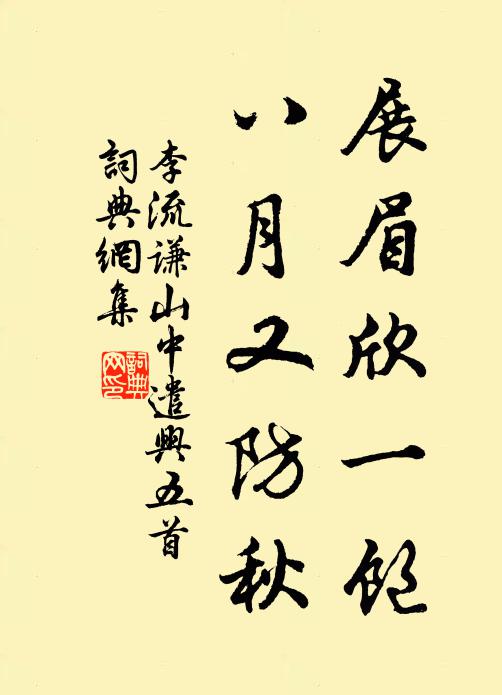 展眉欣一飽
八月又防秋
李流謙山中遣興五首
詞典網集
詞典
网印